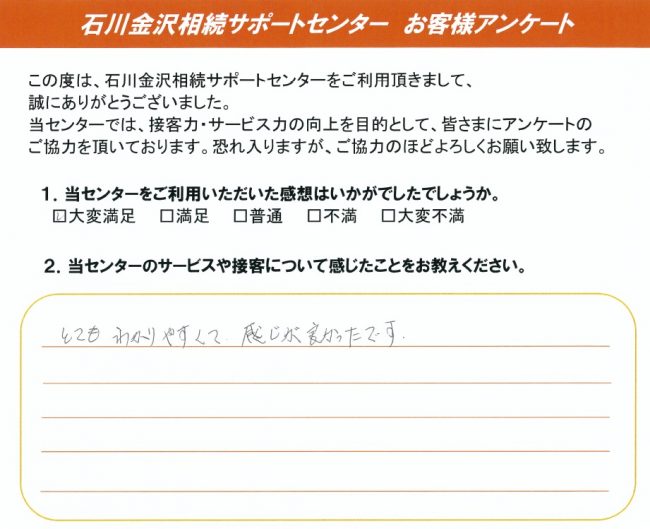 石川金沢相続サポートセンター お客様アンケート
この度は、石川金沢相続サポートセンターをご利用頂きまして、
誠にありがとうございました。
当センターでは、接客力・サービス力の向上を目的として、皆さまにアンケートの
ご協力を頂いております。恐れ入りますが、ご協力のほどよろしくお願い致します。
1. 当センターをご利用いただいた感想はいかがでしたでしょうか。
☑大変満足 □満足 □普通 □不満 □大変不満
2. 当センターのサービスや接客について感じたことをお教えください。
とても わかりやすくて 感じが良かったです.